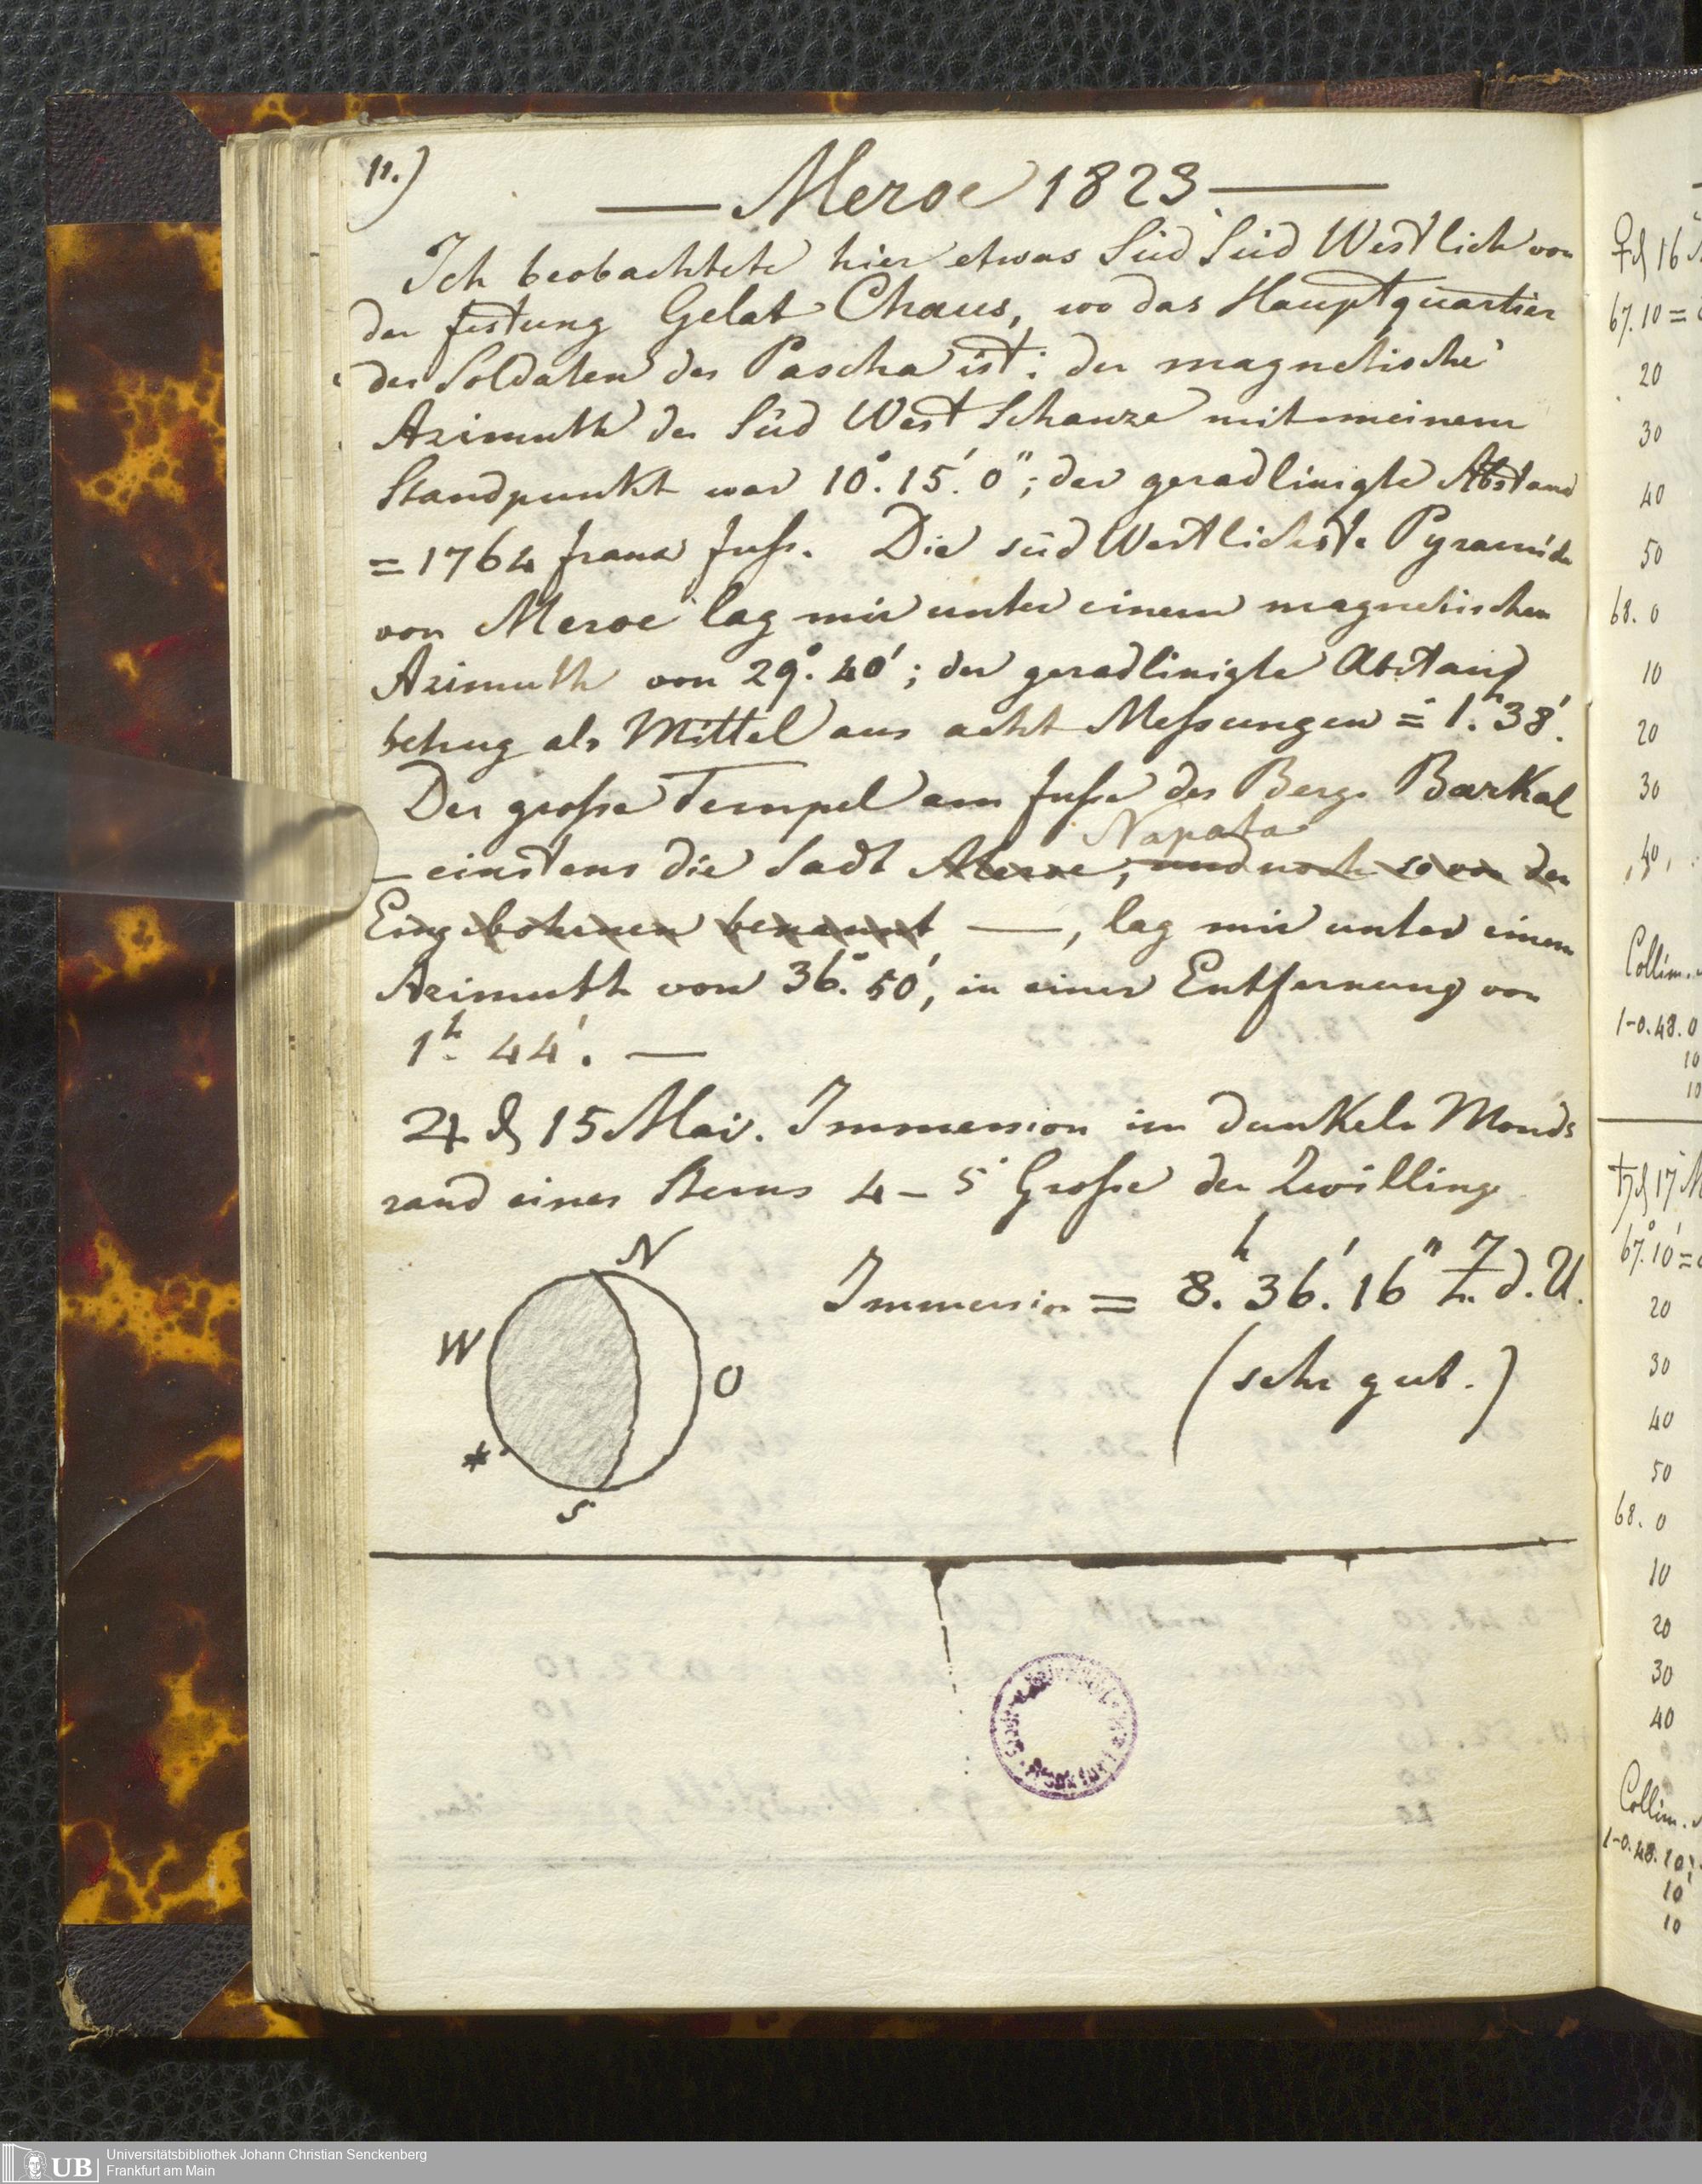 11.)
— Meroe 1823 —
Ich beobachtete hier etwas Süd Süd Westlich von
der festung Gelat Chaus, wo das Hauptquartier
der Soldaten des Pascha ist; der magnetische
Azimuth der Süd West Schanze mit meinem
Standpunkt war 10°. 15'. 0"; der geradlinigte Abstand
= 1764 franz fuß. Die süd Westlichste Pyramide
von Meroe lag mir unter einem magnetischen
Azimuth von 29°. 40'; der geradlinigte Abstand
betrug als Mittel aus acht Meßungen = 1h. 38'.
Der große Tempel am fuße des Bergs Barkal
Napata
— einstens die Sadt Meroe, und noch so von den
Eingebohrnen benannt —, lag mir unter einem
Azimuth von 36°. 50', in einer Entfernung von
1h. 44'. —
♃ d 15 Mai. Immension im dunkeln Monds
rand eines Sterns 4–5 Große der Zwillinge
N
Immension = 8h. 36'. 16" Z. d. U.
W
O
(sehr gut.)
*
S
♀ d 16
67.10 =
20
30
40
50
68. 0
10
20
30
40
Collim.
1-0.48.0
10
10
♄ d 17 M
67°.10' =
20
30
40
50
68. 0
10
20
30
40
Collim.
1-0.48.10
10
10
UB
Universitätsbibliothek Johann Christian Senckenberg
Frankfurt am Main